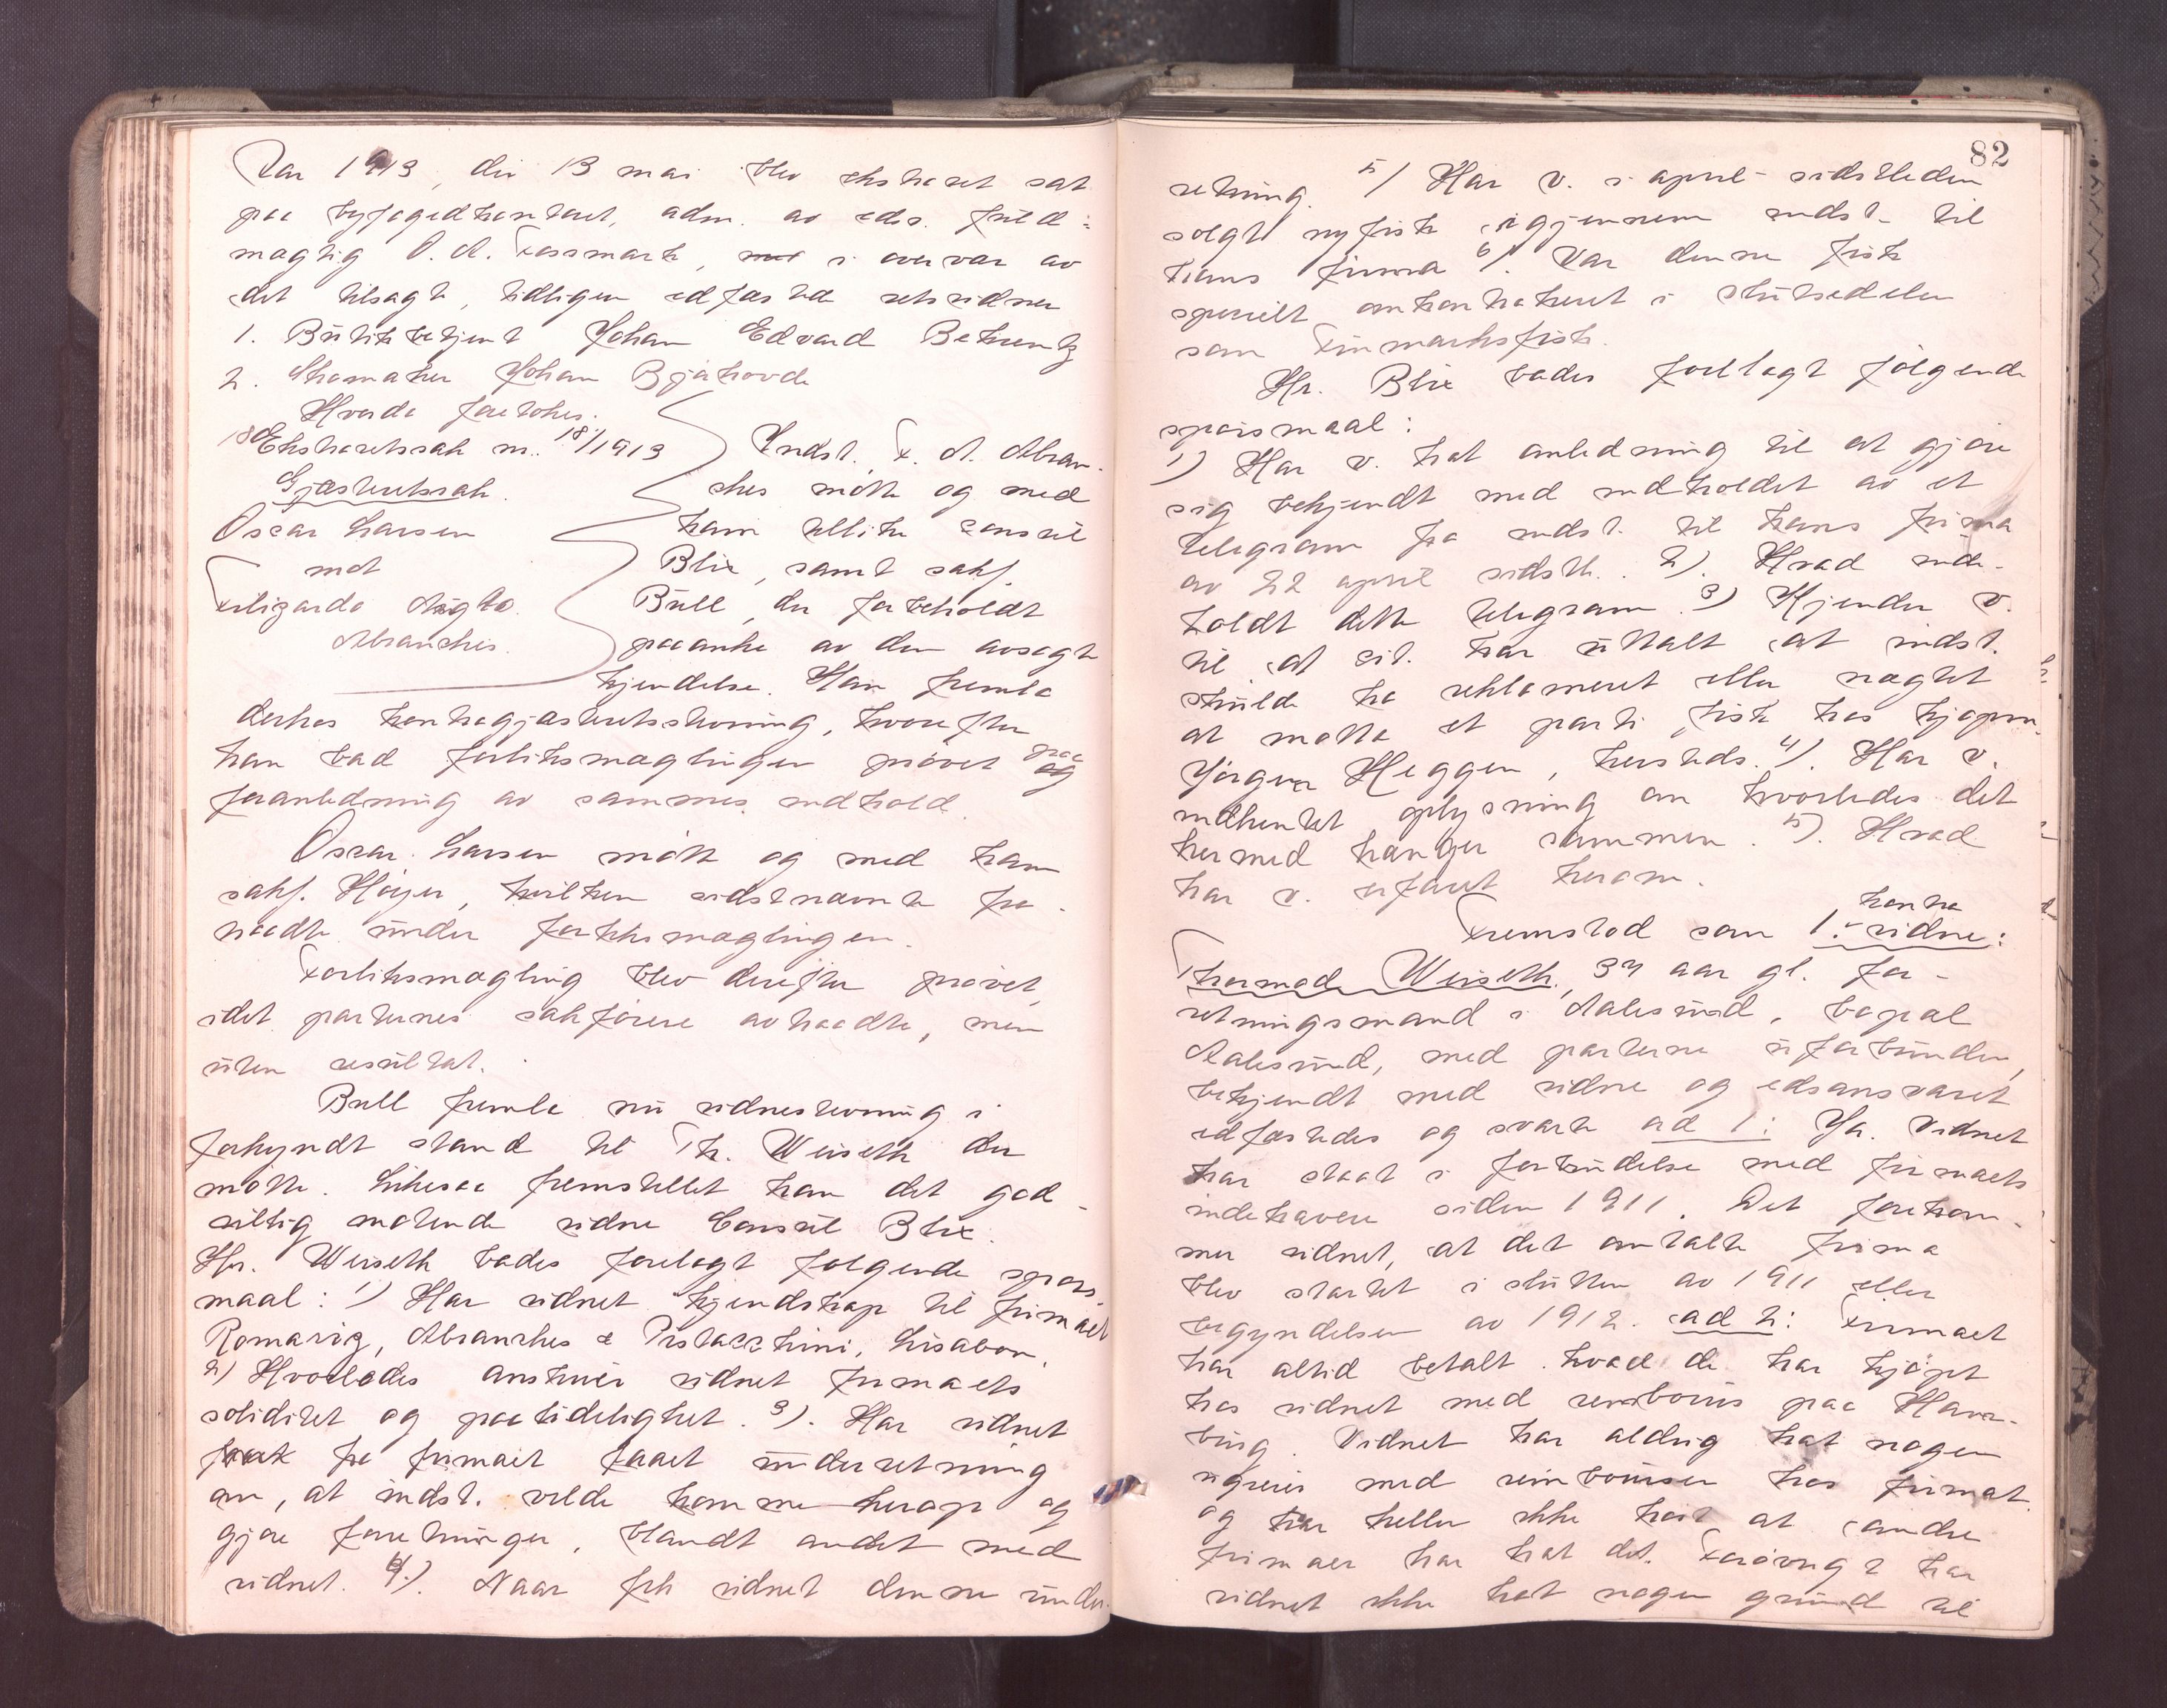 Aar 1913, den 13 mai blev ekstraret sat
paa byfogedkontoret, adm. av eds. fuld-
magtig O. A. Fossmark, i overvær av
det tilsagte, tidligere edfæstede retsvidner
1. Butikbetjent Johan Edvard Behrentz
2. Skomaker Johan Bjåhovde
Hvorda foretokes:
Ekstraretssak nr. 18/1913
Gjæsteretssak.
Oscar Larsen
mot
Felizardo Augto.
Abranches.
Indst. F. A. Abran-
ches møtte og med
ham tillike consul
Blix, samt sakf.
Bull, der forbeholdt
paaanke av den avsagte
kjendelse. Han fremla
derhos kontragjæsteretsstevning, hvorefter
han bad forliksmæglingen prøvet paa
foranledning av sammes indhold.
Oscar Larsen møtte og med ham
sakf. Høyer, hvilken sidstnævnte fra-
traadte under forliksmæglingen.
Forliksmægling blev derefter prøvet,
idet parternes sakførere avtraadte, men
uten resultat.
Bull fremla nu vidnestevning i
forkyndt stand til Th. Weiseth der
møtte. Likesaa fremstillet han det god-
villig møtende vidne Consul Blix.
Hr. Weiseth bades forelagt følgende spørs-
maal: 1) Har vidnet kjendskap til firmaet
Romariz, Abranches & Pistacchini, Lisabon.
2) Hvorledes anskuer vidnet firmaets
soliditet og paalidelighet. 3). Har vidnet
fra firmaet faaet underretning
om, at indst. vilde komme herop og
gjøre forretninger, blandt andet med
vidnet. 4). Naar fik vidnet denne under-
82
retning. 5) Har v. i april sidstleden
solgt nyfisk igjennem indst. til
hans firma 6). Var denne fisk
specielt omkontrahert i slutsedelen
som Finmarksfisk.
Hr. Blix bades forelagt følgende
spørsmaal:
1) Har v. hat anledning til at gjøre
sig bekjendt med indholdet av et
telegram fra indst. til hans firma
av 22 april sidstl. 2). Hvad inde-
holdt dette telegram 3) Kjender v.
til at cit. har uttalt at indst.
skulde ha reklameret eller nægtet
at motta et parti fisk hos kjøpm.
Jørgen Heggen, hersteds. 4). Har v.
indhentet oplysning om hvorledes det
hermed hænger sammen. 5). Hvad
har v. erfaret herom.
Fremstod som 1. kontra
vidne:
Thormod Weiseth, 34 aar gl. for-
retningsmand i Aalesund, bopæl
Aalesund, med parterne uforbunden,
bekjendt med vidne og edsansvaret
edfæstedes og svarte ad 1: Ja. Vidnet
har staat i forbindelse med firmaets
indehavere siden 1911. Det forekom-
mer vidnet, at det omtalte firma
blev startet i slutten av 1911 eller
begyndelsen av 1912. ad 2: Firmaet
har altid betalt hvad de har kjøpt
hos vidnet med remburs paa Ham-
burg. Vidnet har aldrig hat nogen
ugreier med rembursen hos firmaet
og har heller ikke hørt at andre
firmaer har hat det. Forøvrigt har
vidnet ikke hat nogen grund til